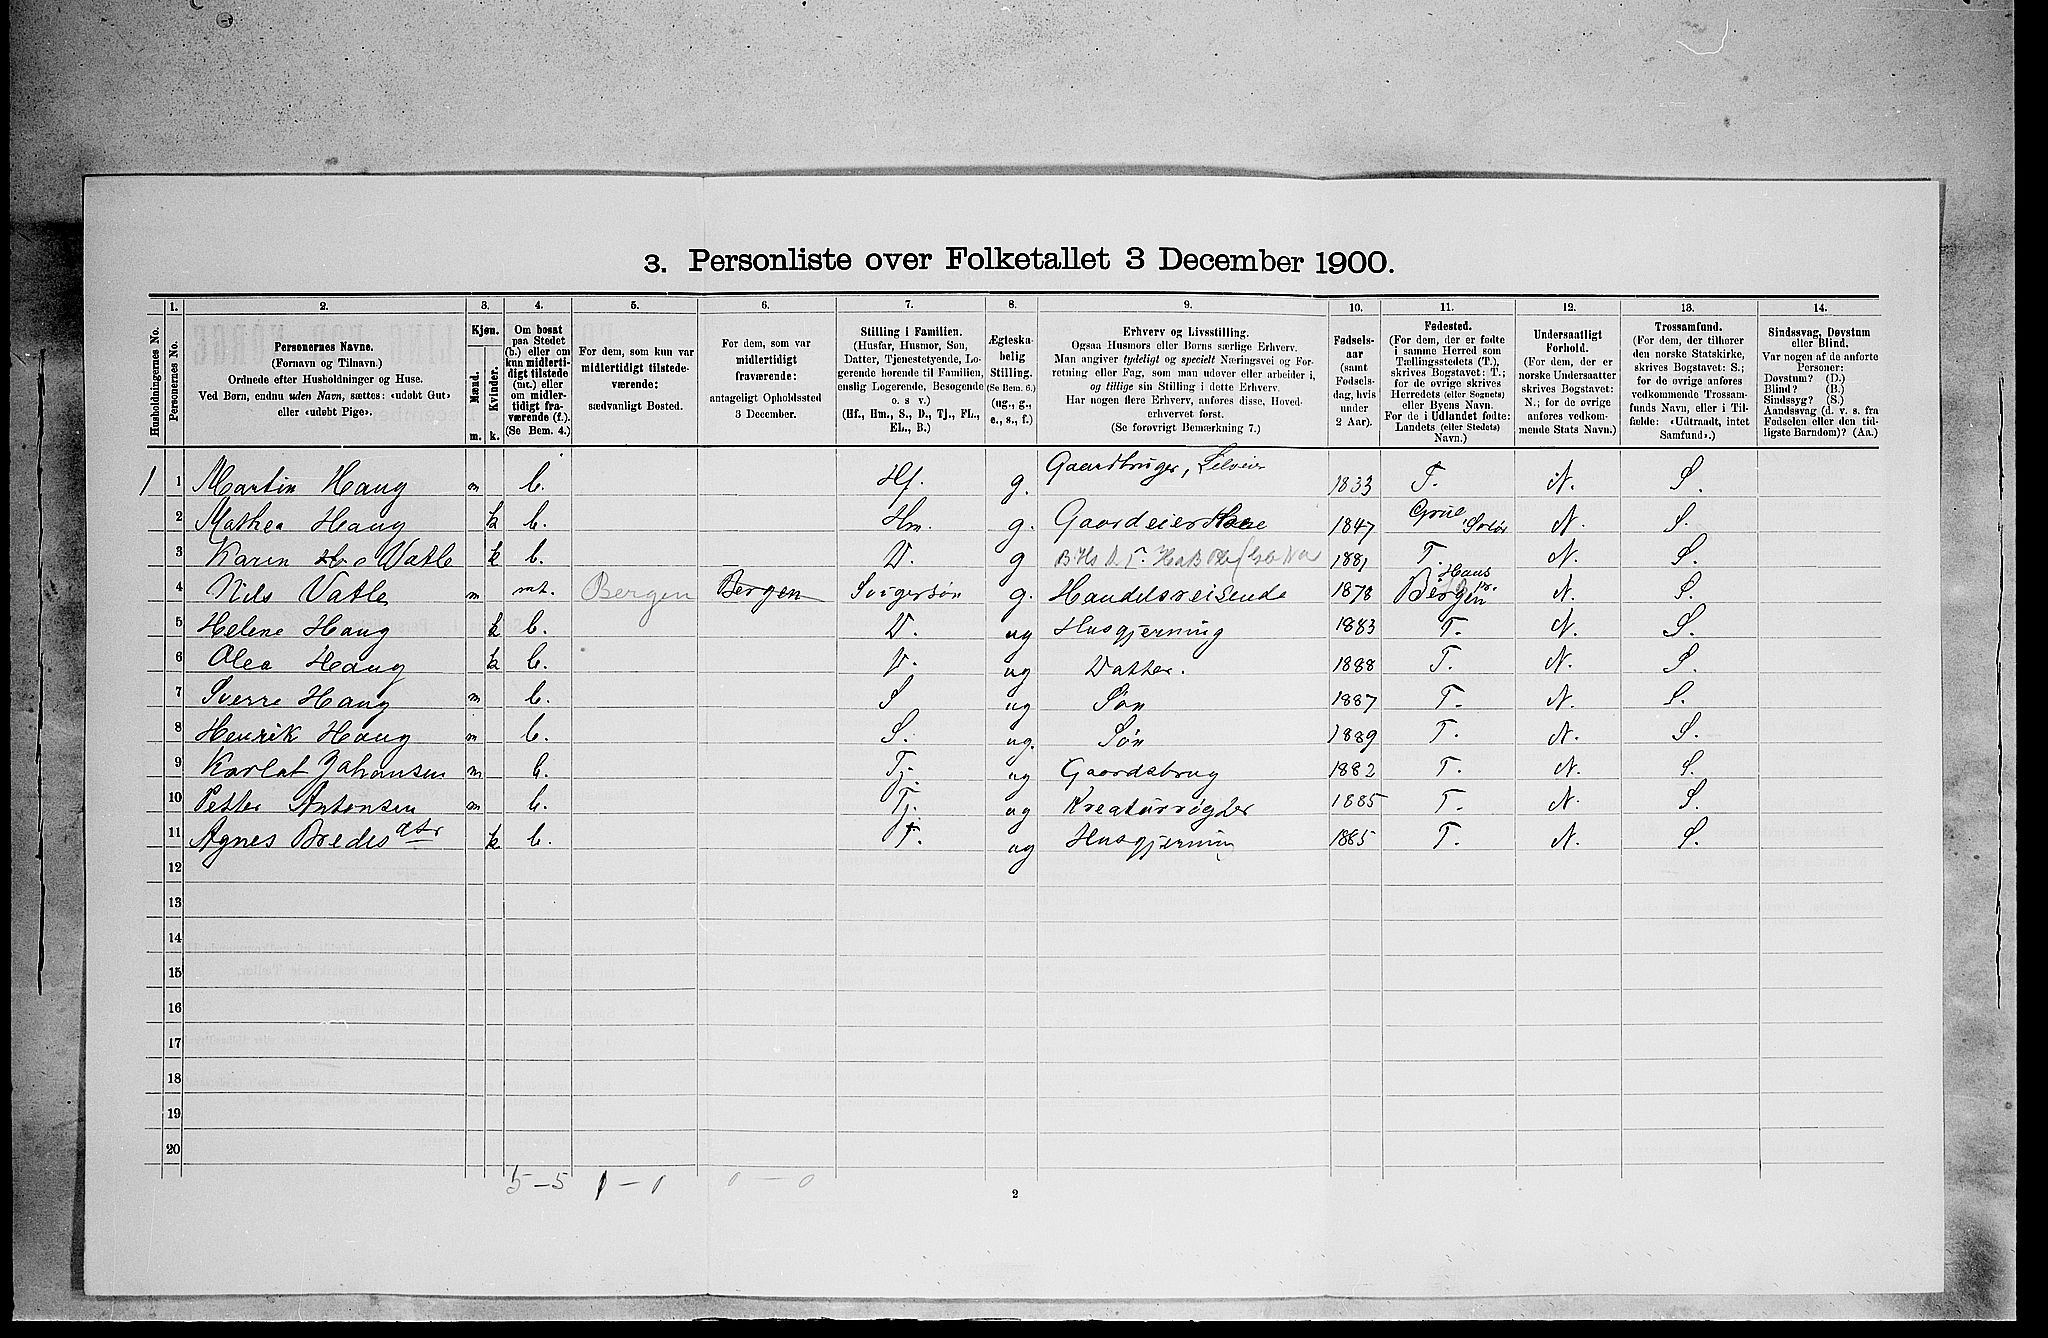 3. Personliste over Folketallet 3 December 1900.
1. 2. 3. 4. 5. 6. 7. 8. 9. 10. 11. 12. 13. 14.
Husholdningernes No.
Personernes No.
Personernes Navne.
(Fornavn og Tilnavn.)
Ordnede efter Husholdninger og Huse.
Ved Børn, endnu uden Navn, sættes: «udøbt Gut»
eller «udøbt Pige».
Kjøn.
Mænd.
Kvinder.
m. k.
Om bosat
paa Stedet
(b.) eller om
kun midlerti-
digt tilstede
(mt.) eller
om midler-
tidigt fra-
værende (f.).
(Se Bem. 4.)
For dem, som kun var
midlertidigt tilstede-
værende:
sædvanligt Bosted.
For dem, som var
midlertidigt
fraværende:
antageligt Opholdssted
3 December.
Stilling i Familien.
(Husfar, Husmor, Søn,
Datter, Tjenestetyende, Lo-
gerende hørende til Familien,
enslig Logerende, Besøgende
o. s v.)
(Hf., Hm., S., D., Tj., FL.,
EL., B.)
Ægteska-
belig
Stilling.
(Se Bem. 6.)
(ug., g.,
e., s., f.)
Erhverv og Livsstilling.
Ogsaa Husmors eller Børns særlige Erhverv.
Man angiver tydeligt og specielt Næringsvei og For-
retning eller Fag, som man udover eller arbeider i,
og tillige sin Stilling i dette Erhverv.
Har nogen flere Erhverv, anføres disse, Hoved-
erhvervet først.
(Se forøvrigt Bemærkning 7.)
Fødsels-
aar
(samt
Fødsels-
dag, hvis
under
2 Aar).
Fødested.
(For dem, der er fødte
i samme Herred som
Tællingsstedets (T.),
skrives Bogstavet: T.;
for de øvrige skrives
Herredets (eller Sognets)
eller Byens Navn.
For de i Udlandet fødte:
Landets (eller Stedets)
Navn.)
Undersaatligt
Forhold.
(For dem, der er
norske Undersaatter
skrives Bogstavet:
N.; for de øvrige
anføres vedkom-
mende Stats Navn.)
Trossamfund.
(For dem, der tilhører
den norske Statskirke,
skrives Bogstavet: S.;
for de øvrige anføres
vedkommende Trossam-
funds Navn, eller i Til-
fælde: «Udtraadt, intet
Samfund».)
Sindssvag, Døvstum
eller Blind.
Var nogen af de anførte
Personer:
Døvstum? (D.)
Blind? (B.)
Sindssyg? (S.)
Aandssvag (d. v. s. fra
Fødselen eller den tid-
ligste Barndom)? (Aa.)
1 1 Martin Haug m b. Hf. g. Gaardbruger, Selveier 1833 T. N. S.
2 Mathea Haug k b. Hm. g. Gaardeierske 1847 Grue Solør N. S.
3 Karin Vatle k b. D. g 1881 T. N. S.
4 Nils Vatle m mt. Bergen Bergen Svigersøn g. Handelsreisende 1878 Bergen N. S.
5 Helene Haug k b. D. ug Husgjerning 1883 T. N. S.
6 Olea Haug k b. D. ug Datter. 1888 T. N. S.
7 Sverre Haug m b. S ug Søn 1887 T. N. S.
8 Henrik Haug m b. S. ug. Søn 1889 T. N. S.
9 Karlot Johansen m b. Tj. ug Gaardsbrug 1882 T. N. S.
10 Petter Antonsen m b. Tj. ug Kreaturrøgter 1885 T. N. S.
11 Agnes Bredesdtr k b. T. ug Husgjerning 1885 T. N. S.
12
13
14
15
16
17
18
19
20
5 – 5 1 – 1 0 – 0
2